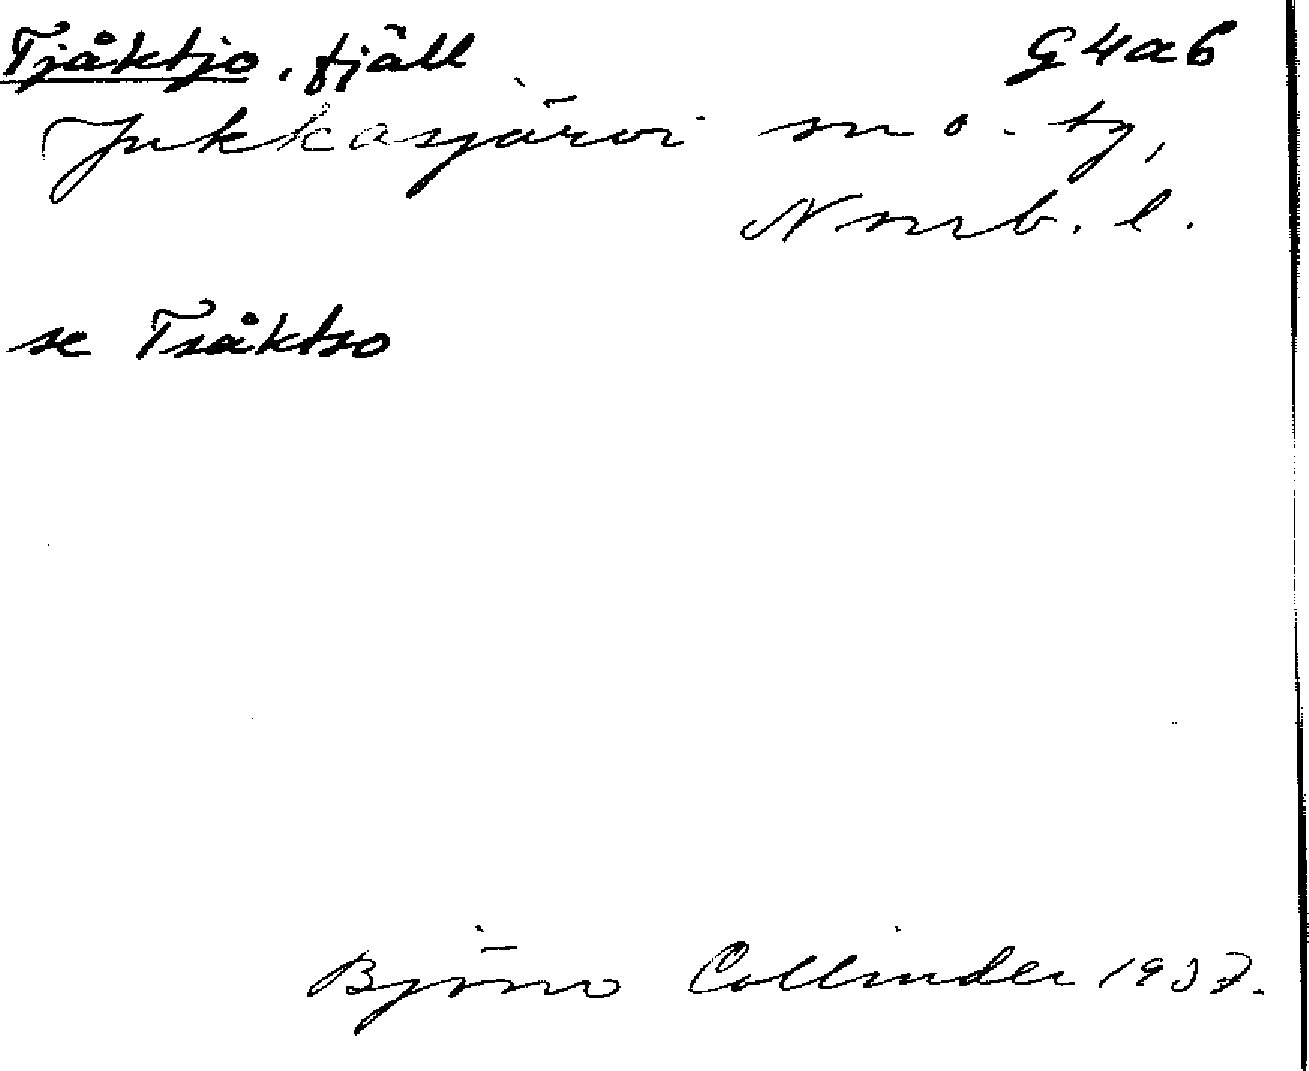 Tjåktjo, fjäll G4a6
Jukkasjärvi sn o. tg,
Norrb. l.
se Tsåktso
Björn Collinder 1937.